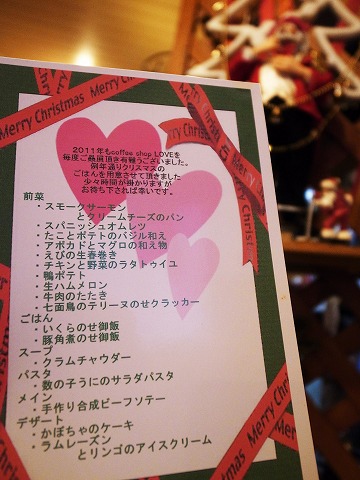 Merry Christmas
Merry Christmas
2011年もcoffee shop LOVEを
毎度ご贔屓頂き有難うございました。
例年通りクリスマスの
ごはんを用意させて頂きました
少々時間が掛かりますが
お待ち下されば幸いです。
前菜
・スモークサーモン
とクリームチーズのパン
・スパニッシュオムレツ
・たことポテトのバジル和え
・アボカドとマグロの和え物
・えびの生春巻き
・チキンと野菜のラタトゥイユ
・鴨ポテト
・生ハムメロン
・牛肉のたたき
・七面鳥のテリーヌのせクラッカー
ごはん
・いくらのせ御飯
・豚角煮のせ御飯
スープ
・クラムチャウダー
パスタ
・数の子うにのサラダパスタ
メイン
・手作り合成ビーフソテー
デザート
・かぼちゃのケーキ
・ラムレーズン
とリンゴのアイスクリーム
Merry Christmas